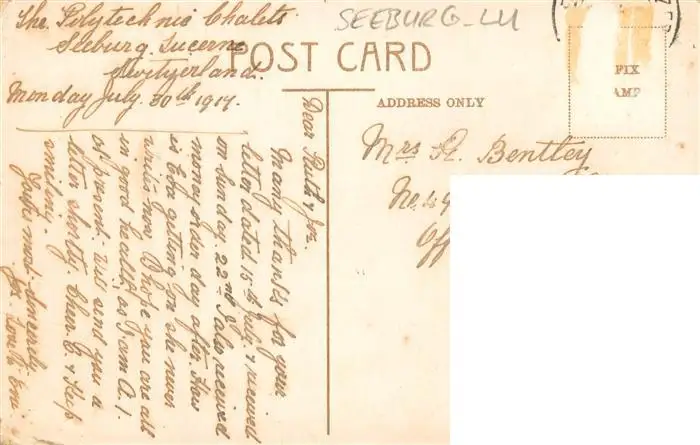 The Polytechnic Chalets
Seeburg. Lucerne
Switzerland.
Monday July. 30th 1917.
SEEBURG-LU
POST CARD
ADDRESS ONLY
FIX
AMP
Mrs A. Bentley
Dear Ruth & Joe.
Many thanks for your
letter dated 15th July, & received
on Sunday. 22nd I also received
money order day after. How
is Eva getting on she never
writes now. I hope you are all
in good health, as I am A.1.
at present. Will send you a
letter shortly. Cheer. O. & Keep
smiling.
Yours most sincerely